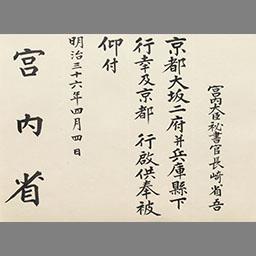 宮内大臣祕書官長崎省吾
京都大坂二府并兵庫縣下
行幸及京都 行啓供奉被
仰付
明治三十六年四月四日
宮内省